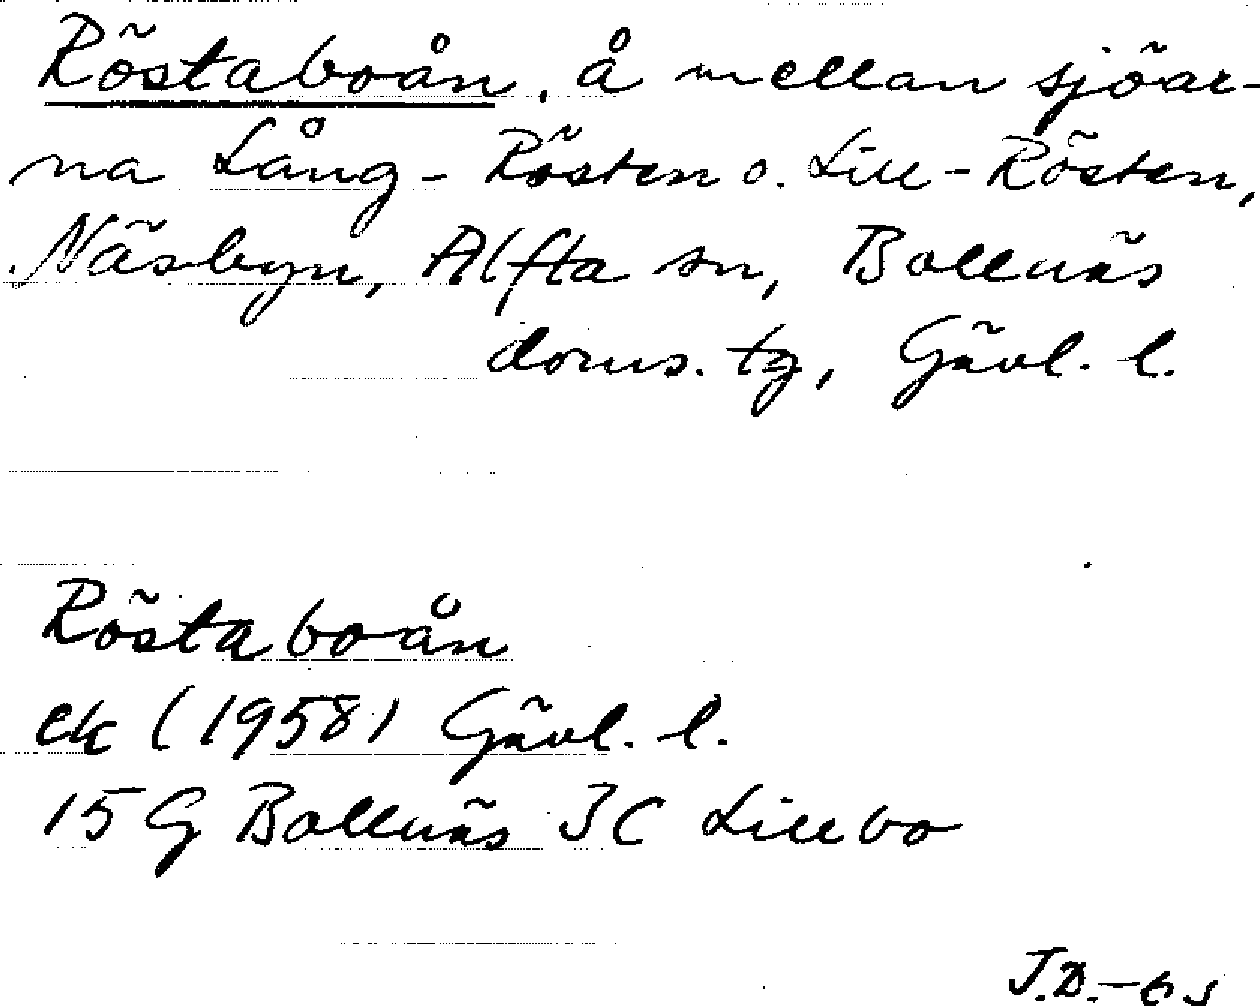 Röstaboån, å mellan sjöar-
na Lång-Rösten o. Lill-Rösten,
Näsbyn, Alfta sn, Bollnäs
doms. tg, Gävl. l.
Röstaboån
ek (1958) Gävl. l.
15 G Bollnäs 3C Lillbo
J.D.-65